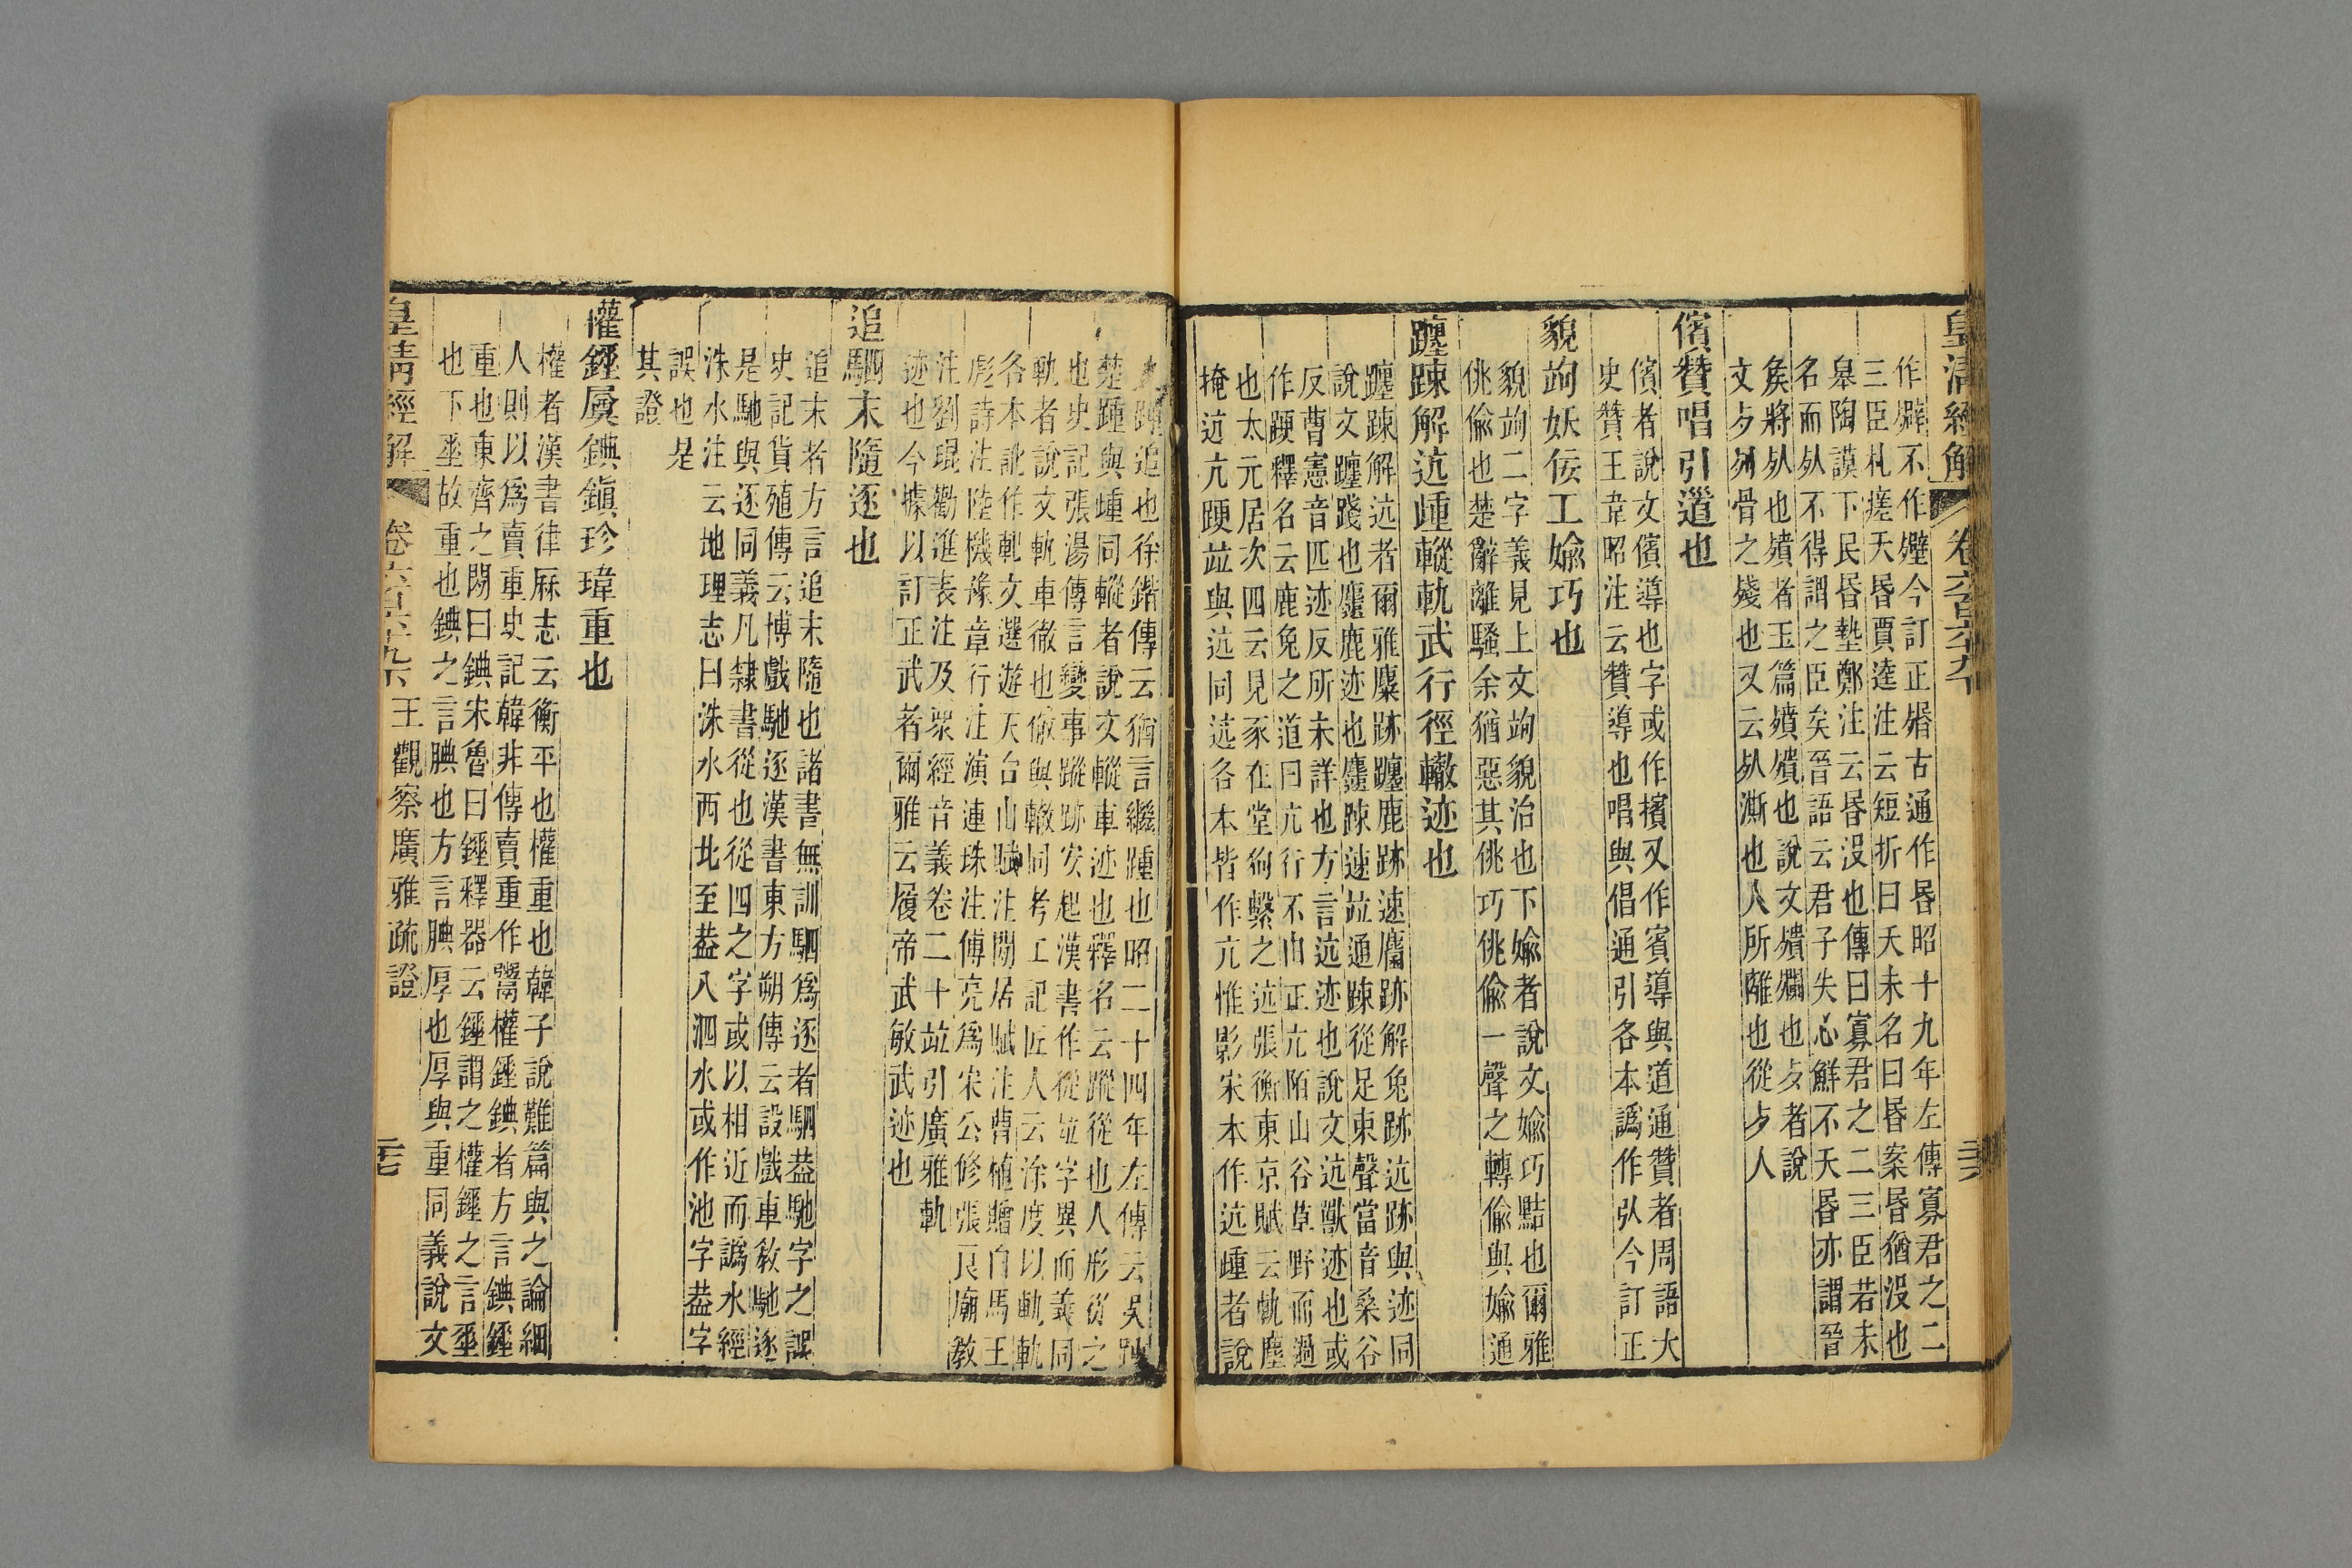 皇清經解 卷六百六十九下 三六
作𤺺不作殬今訂正㱪古通作昬昭十九年左傳寡君之二
三臣札瘥夭昬賈逵注云短折曰夭未名曰昬案昬猶沒也
皋陶謨下民昬墊鄭注云昬沒也傳曰寡君之二三臣若未
名而𣦸不得謂之臣矣晉語云君子失心鮮不夭昬亦謂晉
矦將𣦸也殨者玉篇殨㱮也說文殨爛也歺者說
文歺𠛱骨之殘也又云𣦸澌也人所離也從歺人
儐贊唱引遵也
儐者說文儐導也字或作擯又作賓導與道通贊者周語大
史贊王韋昭注云贊導也唱與倡通引各本譌作弘今訂正
貌竘妖佞工婾巧也
貌竘二字義見上文竘貌治也下婾者說文婾巧黠也爾雅
佻偸也楚辭離騷余猶惡其佻巧佻偸一聲之轉偸與婾通
躔𨁝解迒踵蹤軌武行徑轍迹也
躔𨁝解迒者爾雅麋跡躔鹿跡速麕跡解兔跡迒跡與迹同
說文躔踐也䴪鹿迹也䴪𨁝速竝通𨁝從足束聲當音桑谷
反曹憲音匹迹反所未詳也方言迒迹也說文迒獸迹也或
作䟘釋名云鹿兔之道曰亢行不由正亢陌山谷草野而過
也太元居次四云見豕在堂狗繫之迒張衡東京賦云軌塵
掩迒亢䟘竝與迒同迒各本皆作亢惟影宋本作迒踵者說
文踵追也徐鍇傳云猶言繼踵也昭二十四年左傳云吳踵
楚踵與𨄰同蹤者說文蹤車迹也釋名云蹤從也人形從之
也史記張湯傳言變事蹤跡安起漢書作從竝字異而義同
軌者說文軌車徹也徹與轍同考工記匠人云涂度以軌軌
各本訛作軓文選遊天台山賦注閒居賦注曹植贈白馬王
彪詩注陸機豫章行注演連珠注傅亮爲宋公修張良廟敎
注劉琨勸進表注及眾經音義卷二十竝引廣雅軌
迹也今據以訂正武者爾雅云履帝武敏武迹也
追駟末隨逐也
追末者方言追末隨也諸書無訓駟爲逐者駟葢馳字之誤
史記貨殖傳云博戲馳逐漢書東方朔傳云設戲車敎馳逐
是馳與逐同義凡隸書從也從四之字或以相近而譌水經
洙水注云地理志曰洙水西北至葢入泗水或作池字葢字
誤也是
其證
權鋞屒錪鎭珍瑋重也
權者漢書律厤志云衡平也權重也韓子說難篇與之論細
人則以爲賣重史記韓非傳賣重作鬻權鋞錪者方言錪鋞
重也東齊之閒曰錪宋魯曰鋞釋器云鋞謂之權鋞之言𡍮
也下𡍮故重也錪之言腆也方言腆厚也厚與重同義說文
皇清經解 卷六百六十九下 王觀察廣雅疏證 三七